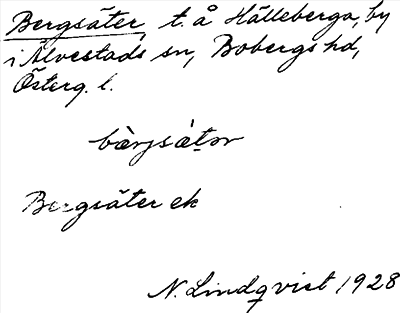 Bergsäter, t. å Hälleberga, by
i Älvestads sn, Bobergs hd,
Österg. l.
bàrjsätər
Bergsäter ek
N. Lindqvist 1928